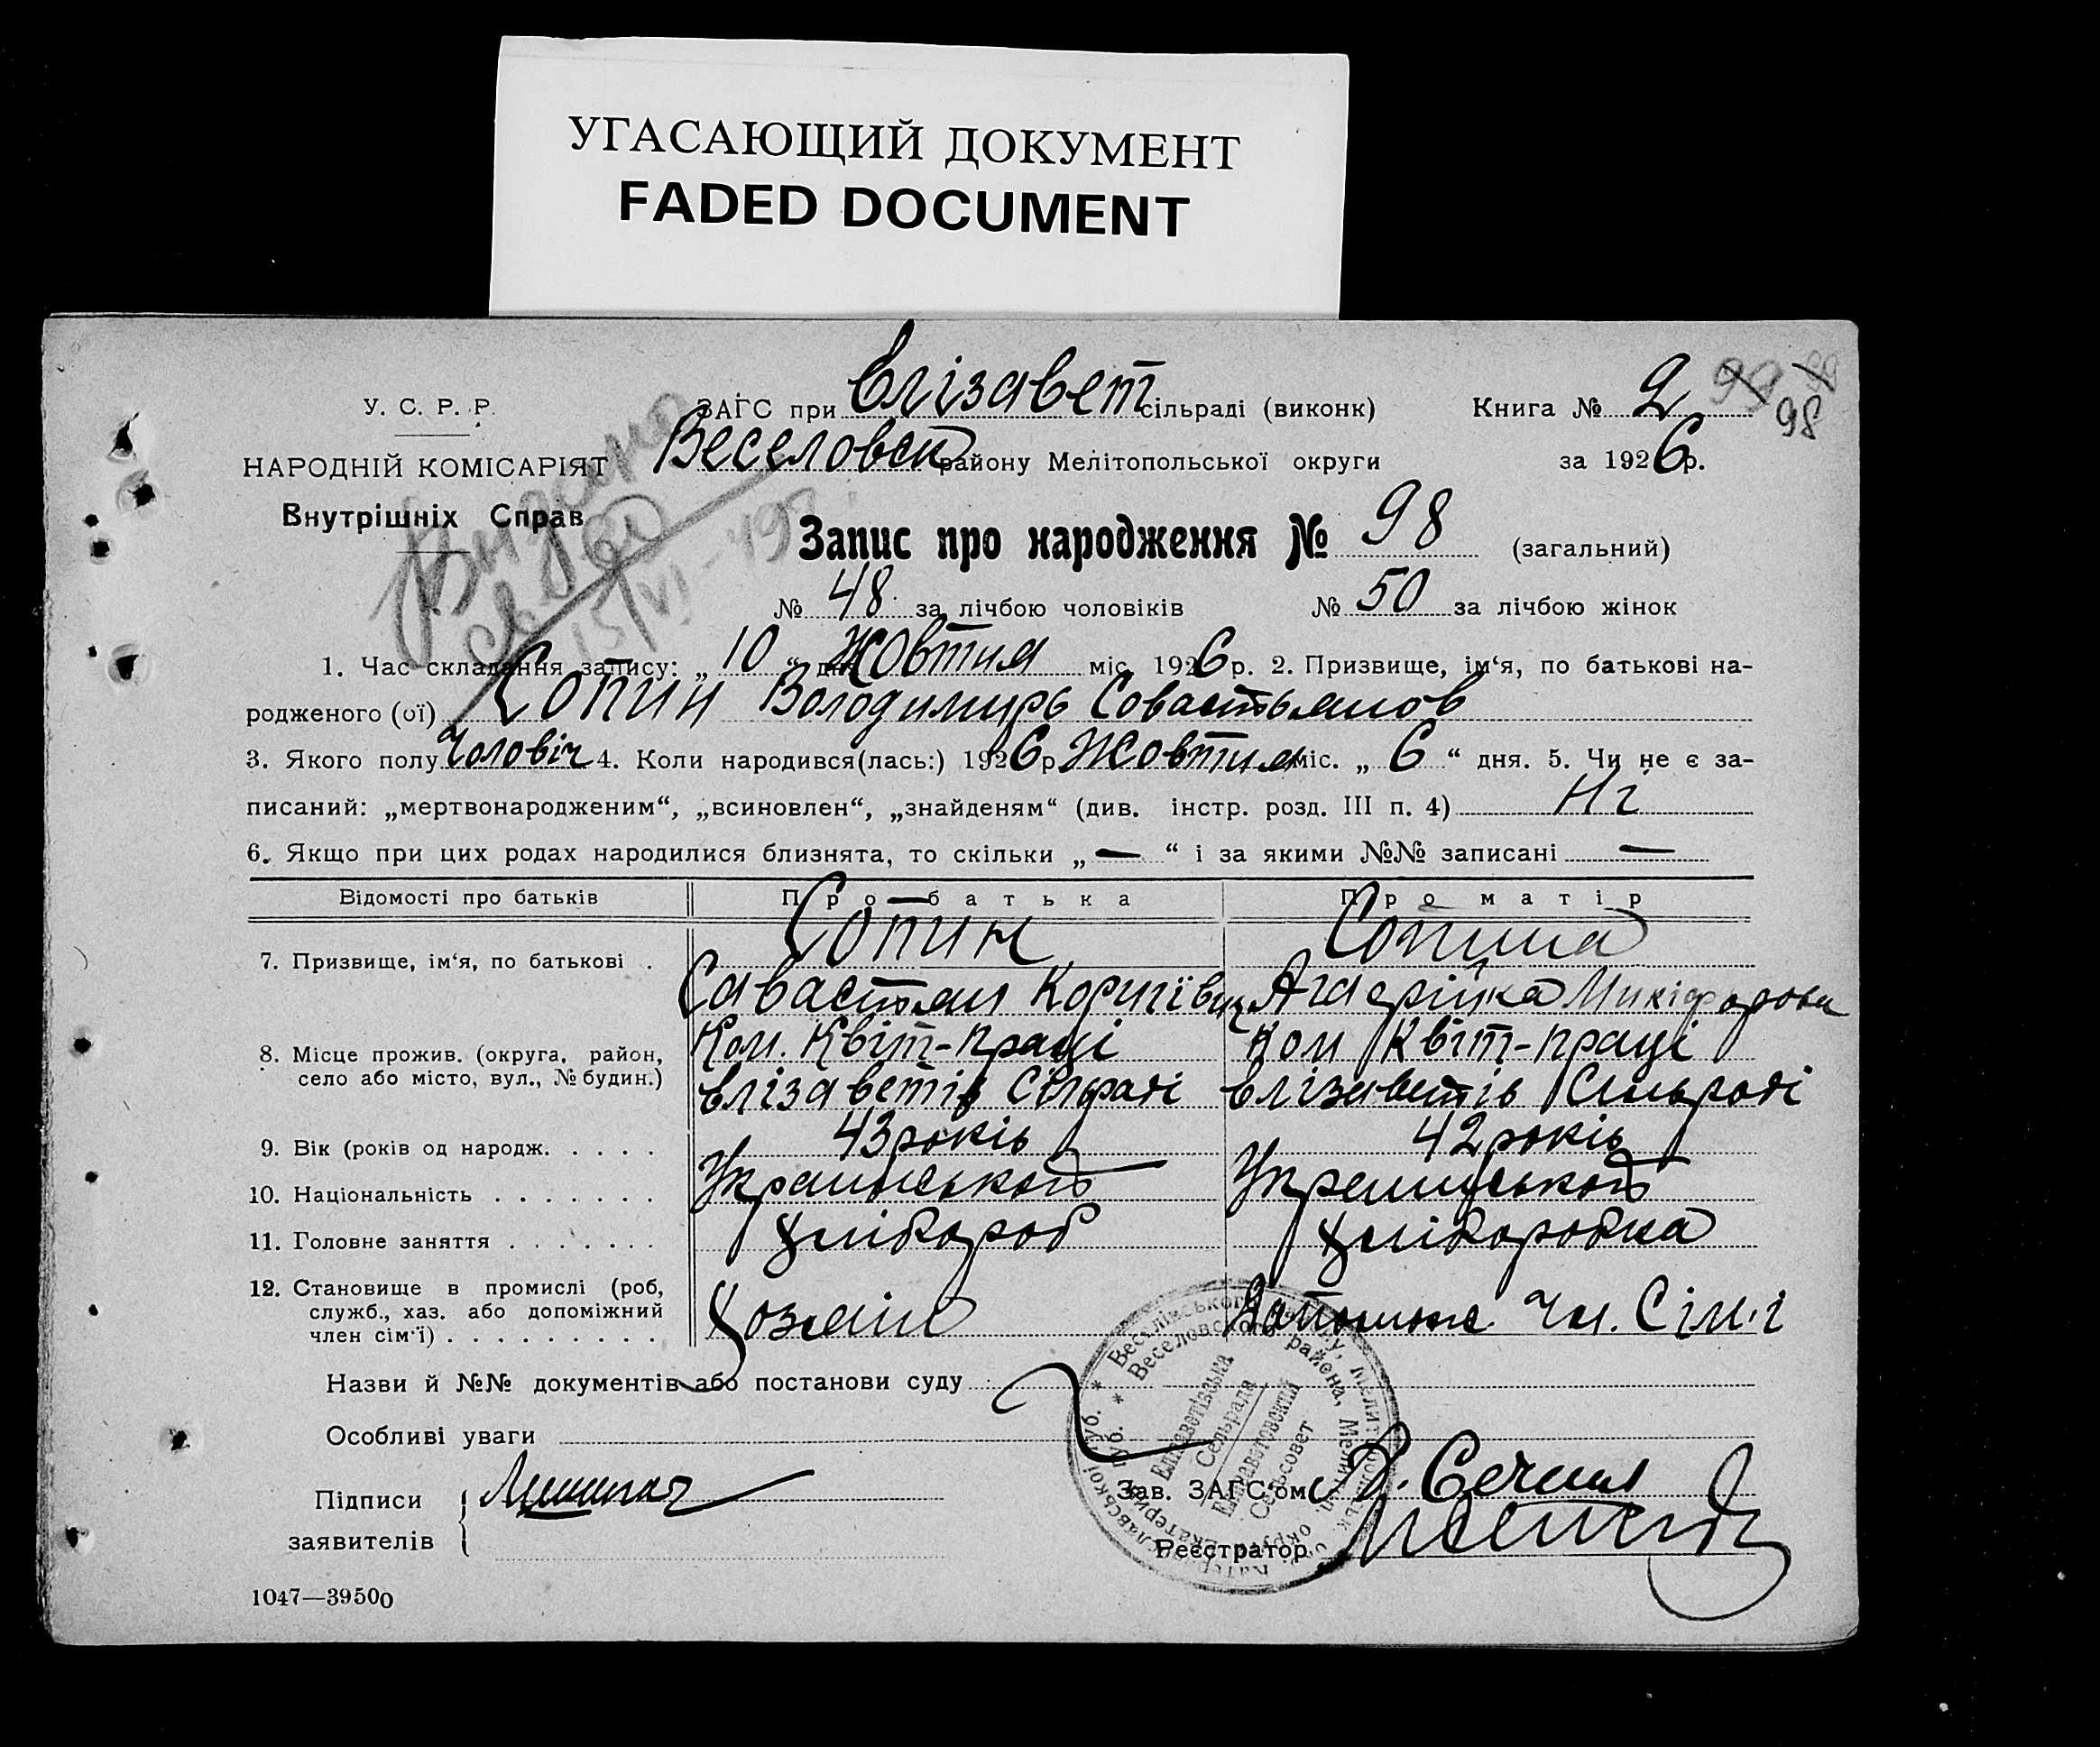 УГАСАЮЩИЙ ДОКУМЕНТ
FADED DOCUMENT
У. С. Р. Р.
НАРОДНІЙ КОМІСАРІЯТ
Внутрішніх Справ
ЗАГС при Єлізавет сільраді (виконк)
Веселовск району Мелітопольської округи
Книга № 2
98
за 1926 р.
Видано
Запис про народження № 98 (загальний)
№ 48 за лічбою чоловіків № 50 за лічбою жінок
1. Час складання запису: „ 10 “ дня Жовтня міс. 1926 р. 2. Призвище, ім‘я, по батькові на-
родженого (ої) Сопин Володимирь Совастьянов
3. Якого полу Чоловіч 4. Коли народився(лась:) 1926 р Жовтня міс. „ 6 “ дня. 5. Чи не є за-
писаний: „мертвонародженим“, „всиновлен“, „знайденям“ (див. інстр. розд. III п. 4) Ні
6. Якщо при цих родах народилися близнята, то скільки „ — “ і за якими №№ записані —
Відомості про батьків Про батька Про матір
7. Призвище, ім‘я, по батькові . Сопин Сопина
Савастян Микіфорови
8. Місце прожив. (округа, район, село або місто, вул., № будин.) Ком. Квіт-праці Ком Квіт-праці
Єлізаветів Сілраді Єлізаветів Сільраді
9. Вік (років од народж. . . . . 43 років 42 років
10. Національність . . . . . . . Украинської Украинської
11. Головне заняття . . . . . . . Хлібороб Хлібороока
12. Становище в промислі (роб, служб., хаз. або допоміжний член сім‘ї) . . . . . . . . . Хозяін Чл. Сім.і
Назви й №№ документів або постанови суду
Особливі уваги
Підписи
заявителів
Зав. ЗАГС‘ом
Реєстратор
Єлизаветівська
Сельрада
Елизаветовский
Сельсовет
1047—39500